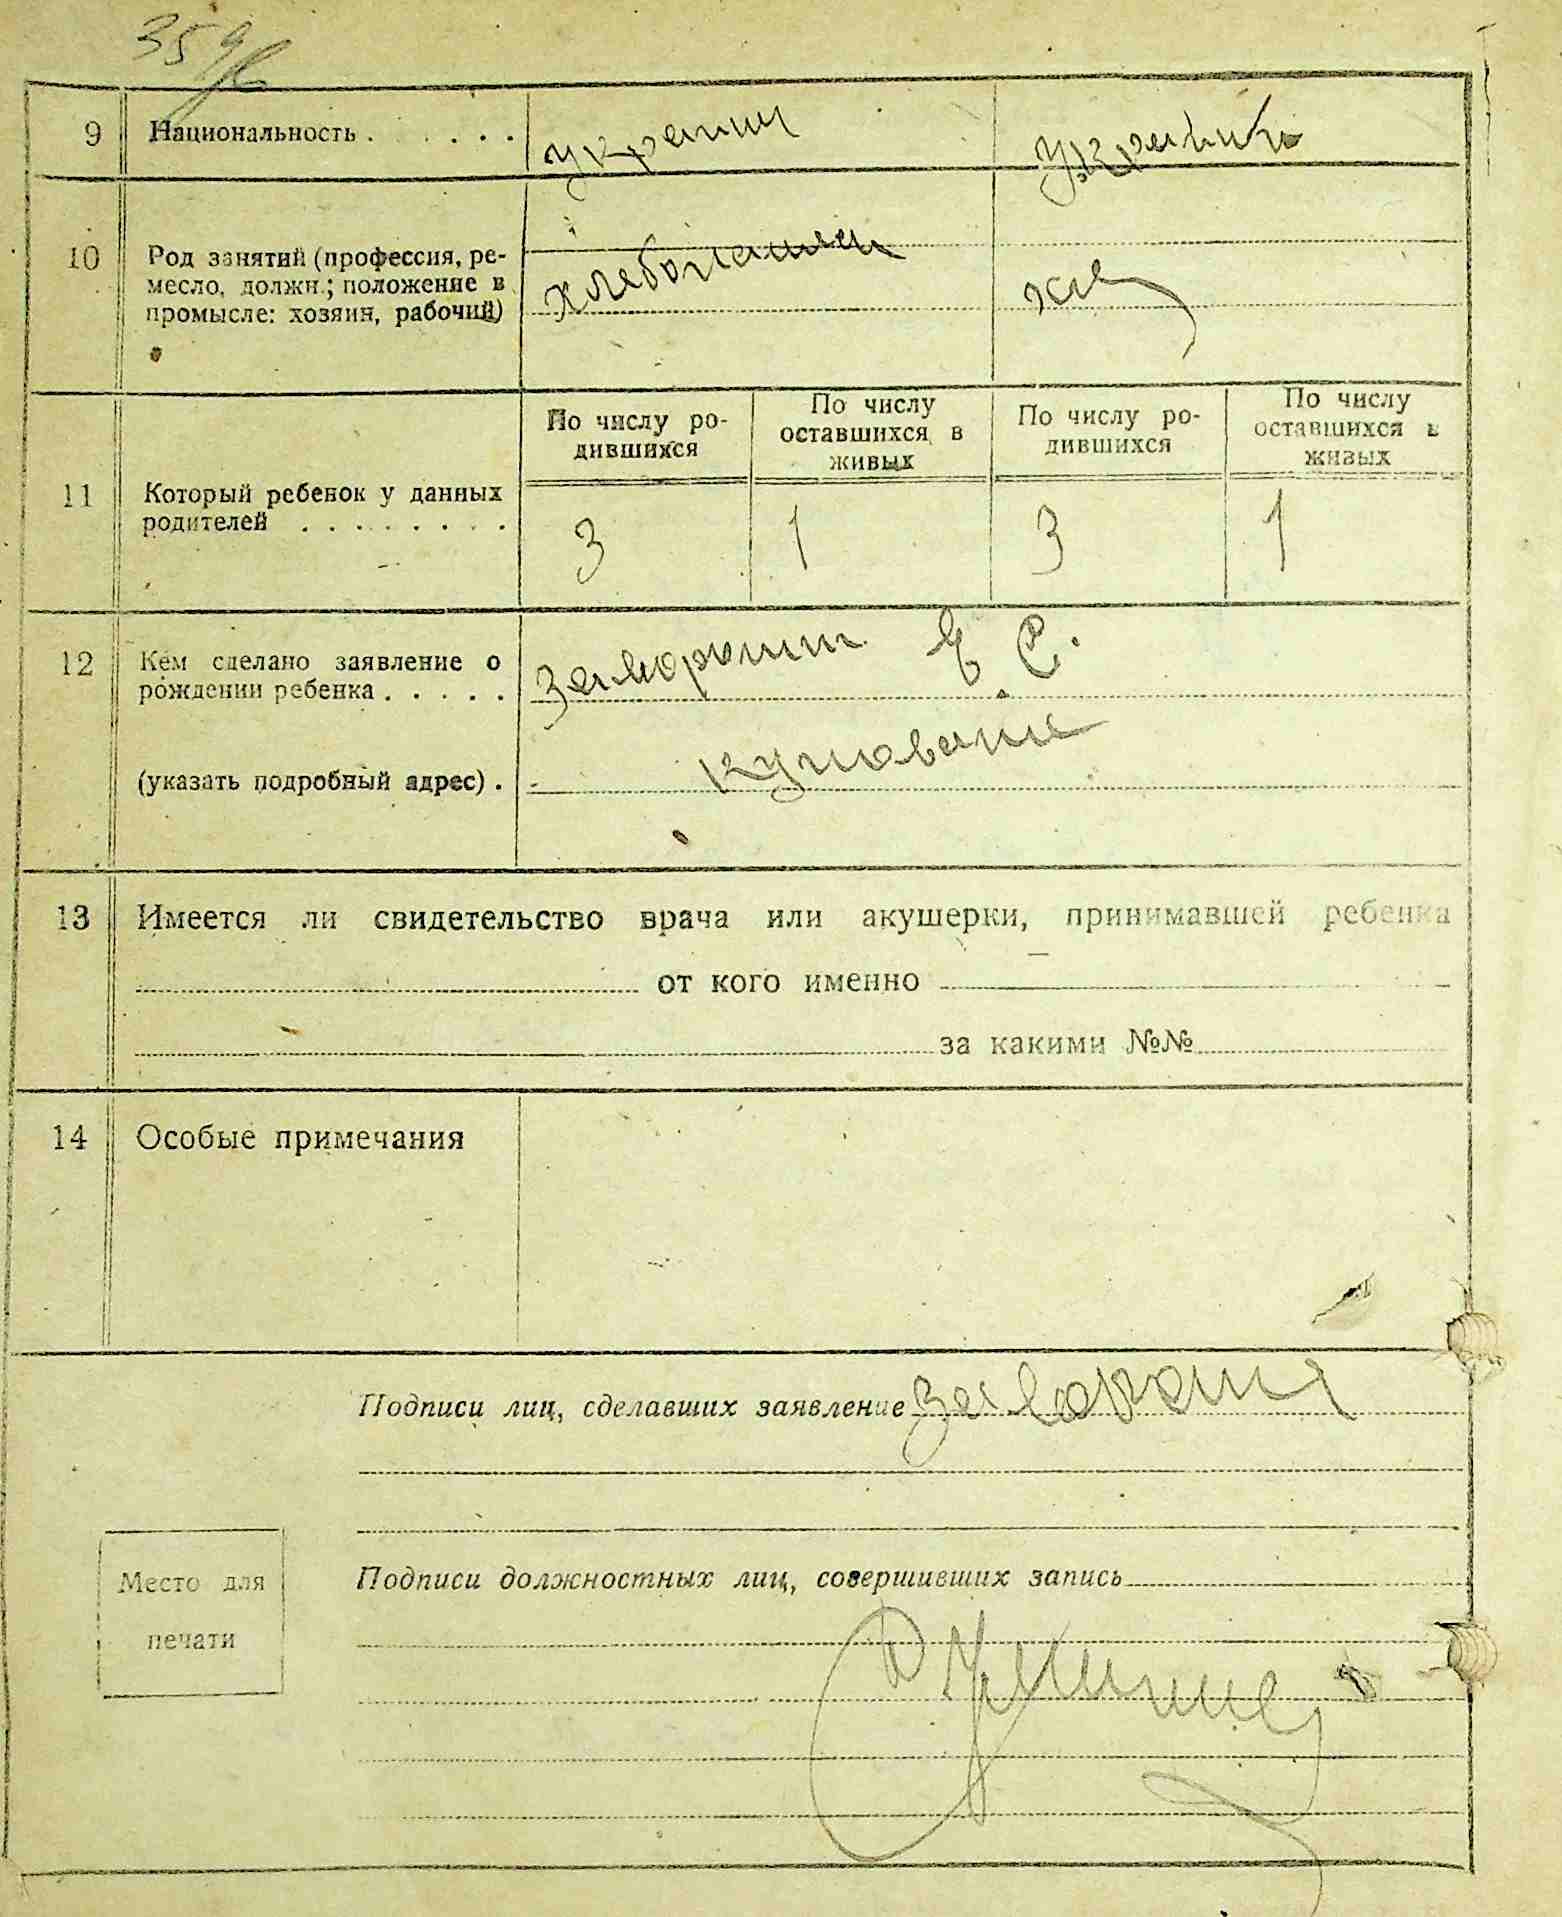 359
9 Национальность . . . . . . украин украин
10 Род занятий (профессия, ре-
месло, должн.; положение в
промысле: хозяин, рабочий)
хлебопашец хле
По числу ро-
дившихся
По числу
оставшихся в
живых
По числу ро-
дившихся
По числу
оставшихся в
живых
11 Который ребенок у данных
родителей . . . . . . . .
3 1 3 1
12 Кем сделано заявление о
рождении ребенка . . . . .
Е. С.
(указать подробный адрес) .
13 Имеется ли свидетельство врача или акушерки, принимавшей ребенка
от кого именно
за какими №№
14 Особые примечания
Подписи лиц, сделавших заявление
Подписи должностных лиц, совершивших запись
Место для
печати